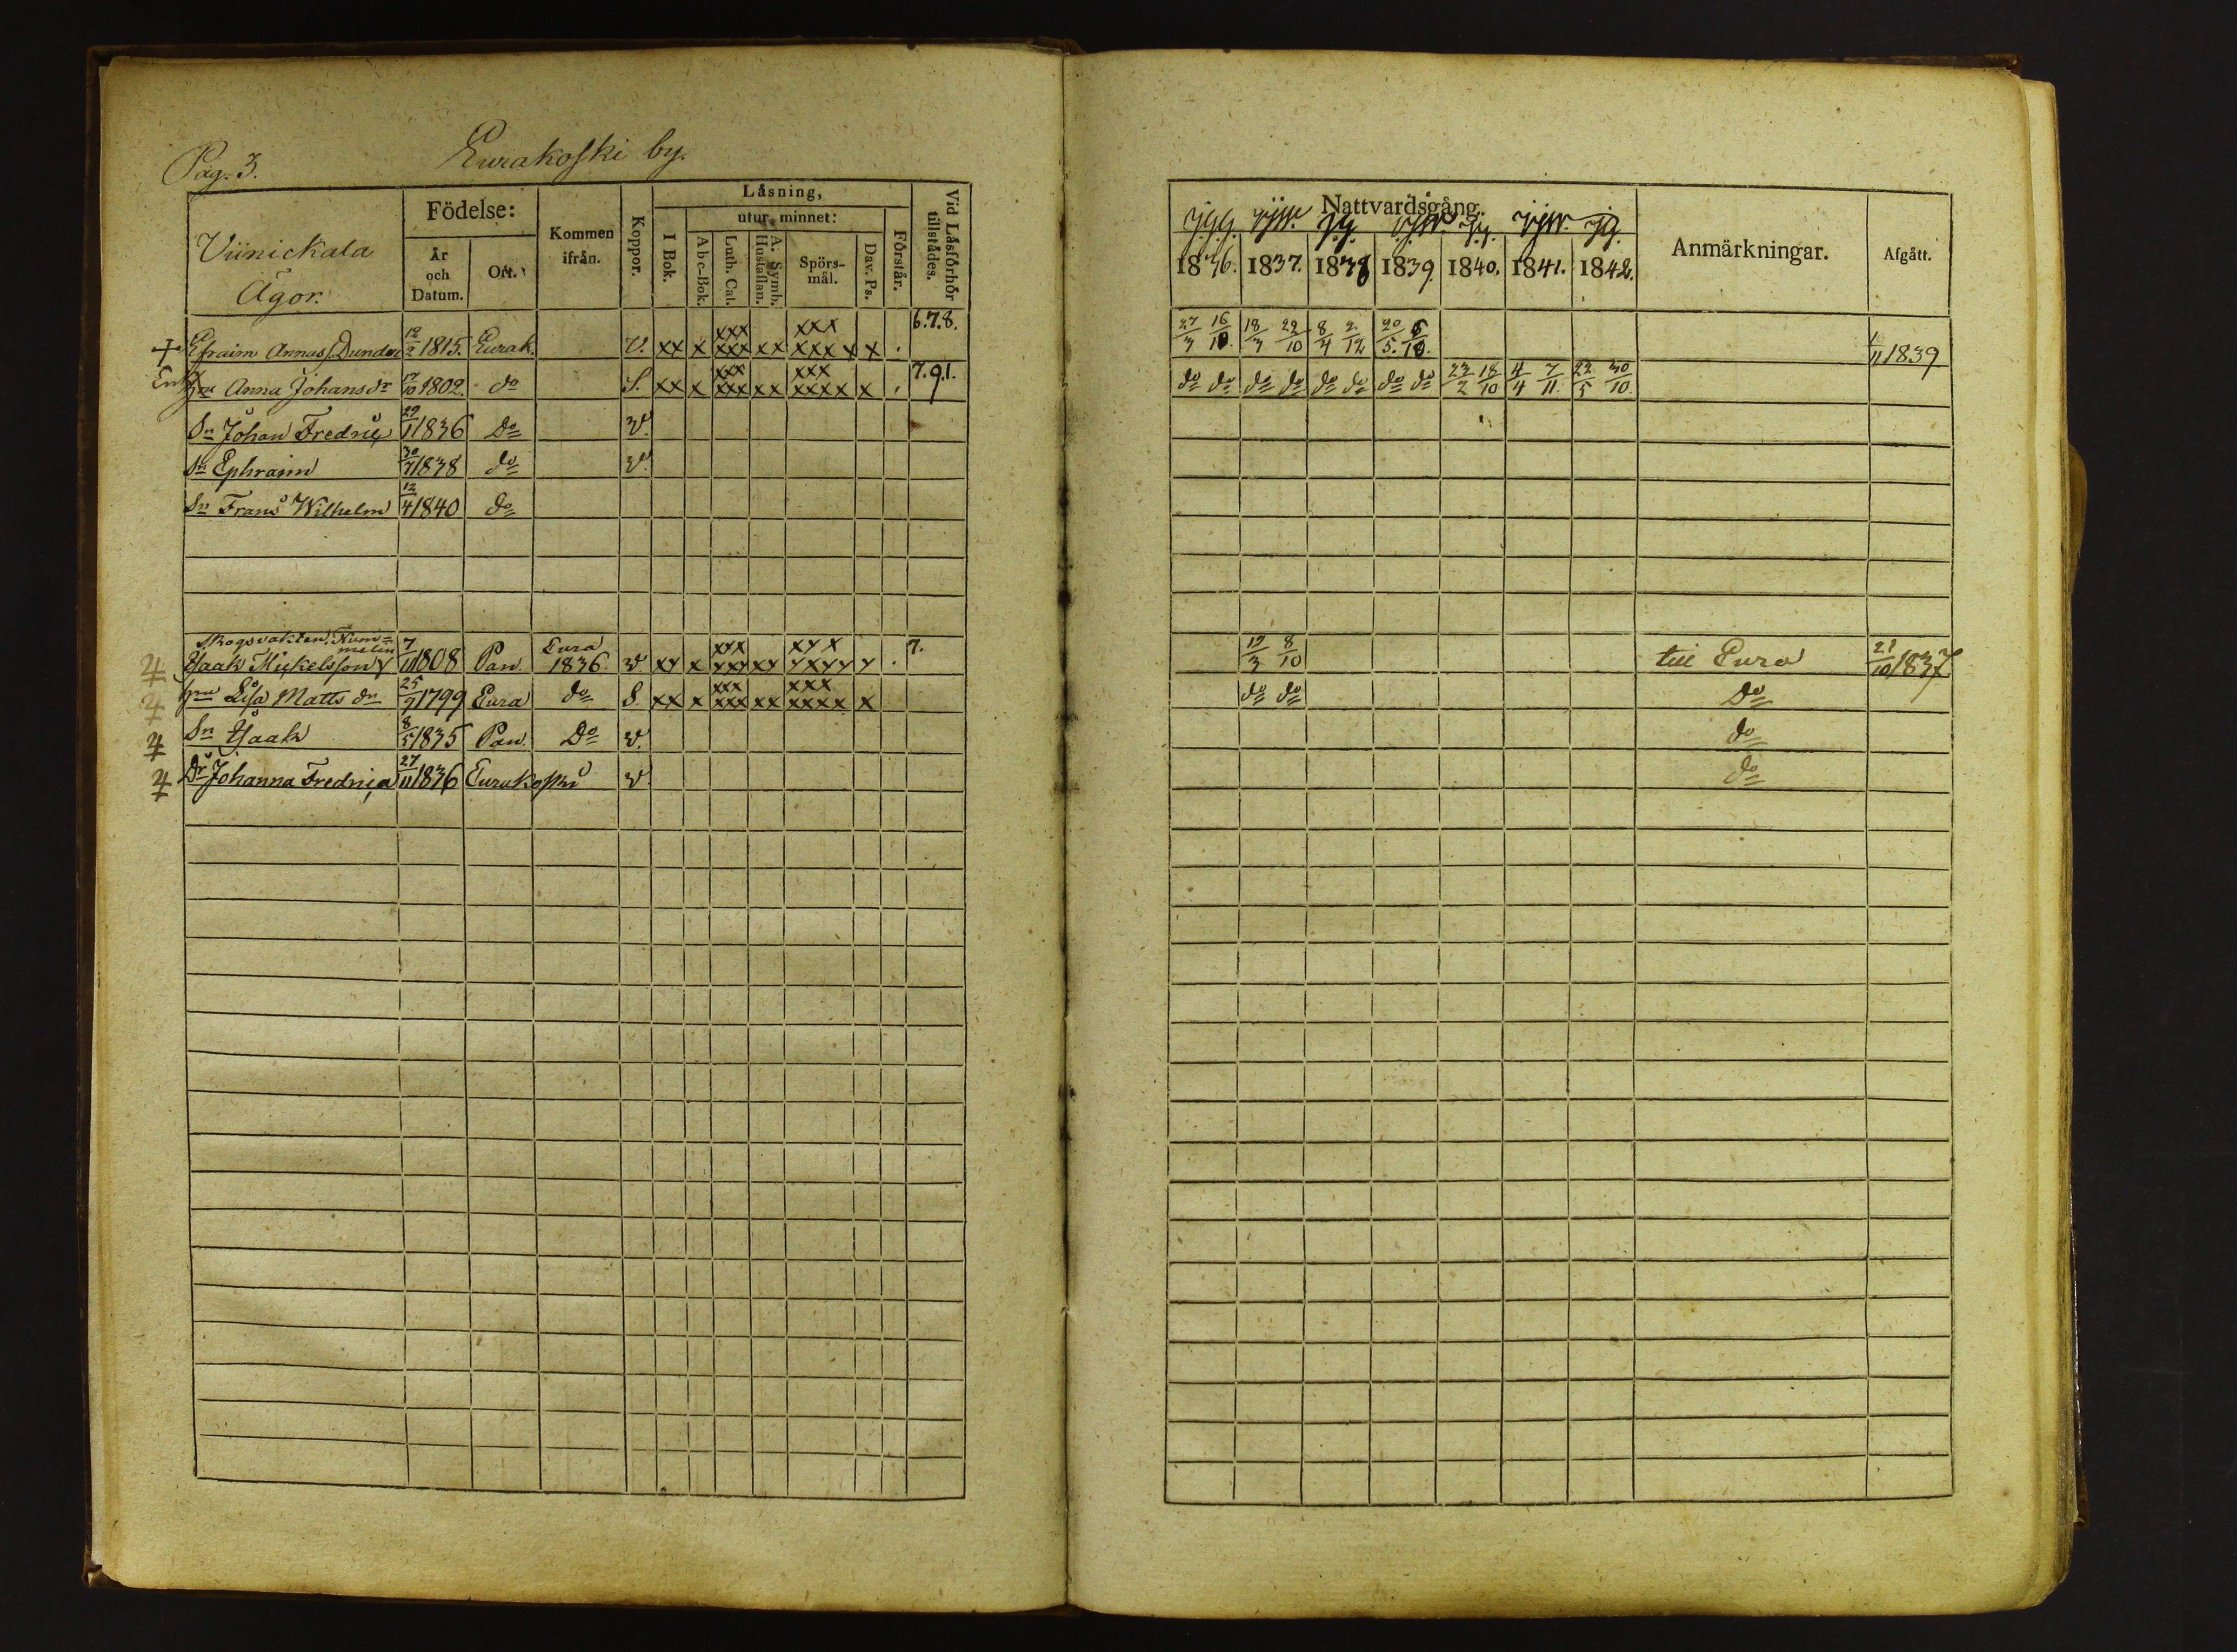 Pag. 3. Eurakoski by.
Viinickala
Ägor.
Födelse:
År
och
Datum.
Ort.
Kommen
ifrån.
Koppor.
Läsning,
I Bok.
utur minnet:
Abc-Bok.
Luth. Cat.
A. Symb.
Hustaflan.
Spörs-
mål.
Dav. Ps.
Förstår.
Vid Läsförhör
tillstädes.
Nattvardsgång.
1836. 1837. 1838 1839. 1840. 1841. 1842.
Anmärkningar.
Afgått.
+ Efraim Annass. Dunder 12/2 1815. Eurak. V. xx x xxx xxx xx xxx xxx x x . 6.7.8. 27/3 16/10. 18/3 22/10 8/4 2/12 20/5. 6/10. /11 1839
Enk. Hu Anna Johansdr 17/10 1802. do S. xx x xxx xxx xx xxx xxxx x . 7.9.1. do do do do do do do do 23/2 18/10 4/4 7/11. 22/5 30/10.
Sn Johan Fredric 29/11 1836 Do v.
Sn Ephraim 30/7 1838 do v.
Sn Frans Wilhelm 12/4 1840 do
Skogsvakten Num=
melin
Isaak Mickelsson 7/11 1808 Pan. Eura 1836. v xx x xxx xxx xx xxx xxxx x . 7. 19/3 8/10 till Eura 21/10 1837.
Hu Lisa Matts dr 25/7 1799 Eura do S xx x xxx xxx xx xxx xxxx x do do Do
Sn Isaak 8/5 1835 Pan. Do v. do
Dr Johanna Fredrica 27/11 1836 Eurakoski v. do